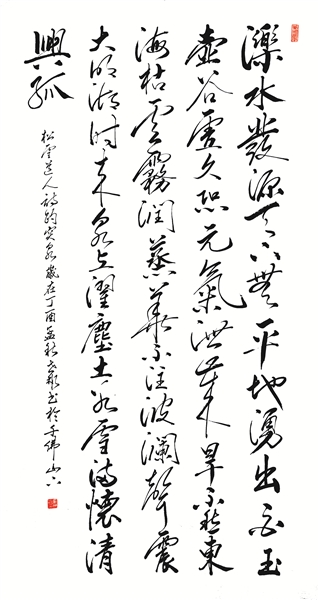 濼水發源天下無平地湧出白玉
壺谷虛久恐元氣泄歲旱不愁東
海枯雲霧潤蒸華不注波瀾聲震
大明湖時來泉上濯塵土冰雪滿懷清
興孤
松雪道人詩趵突泉歲在丁酉孟秋書於千佛山下